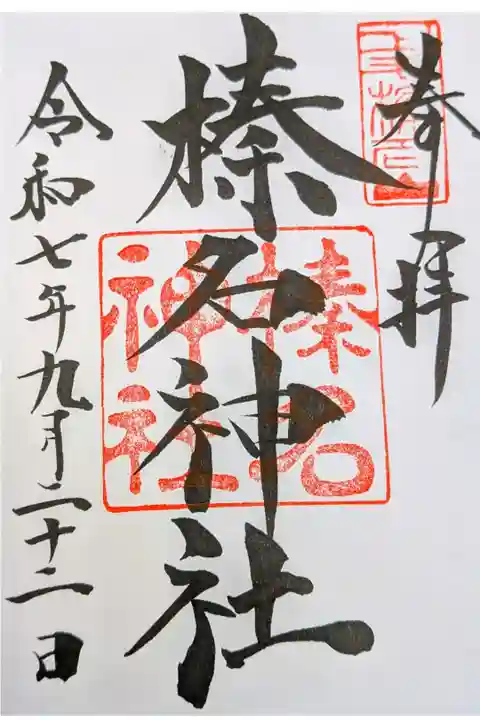 奉拝
榛名神社
榛名神社
令和七年九月二十二日